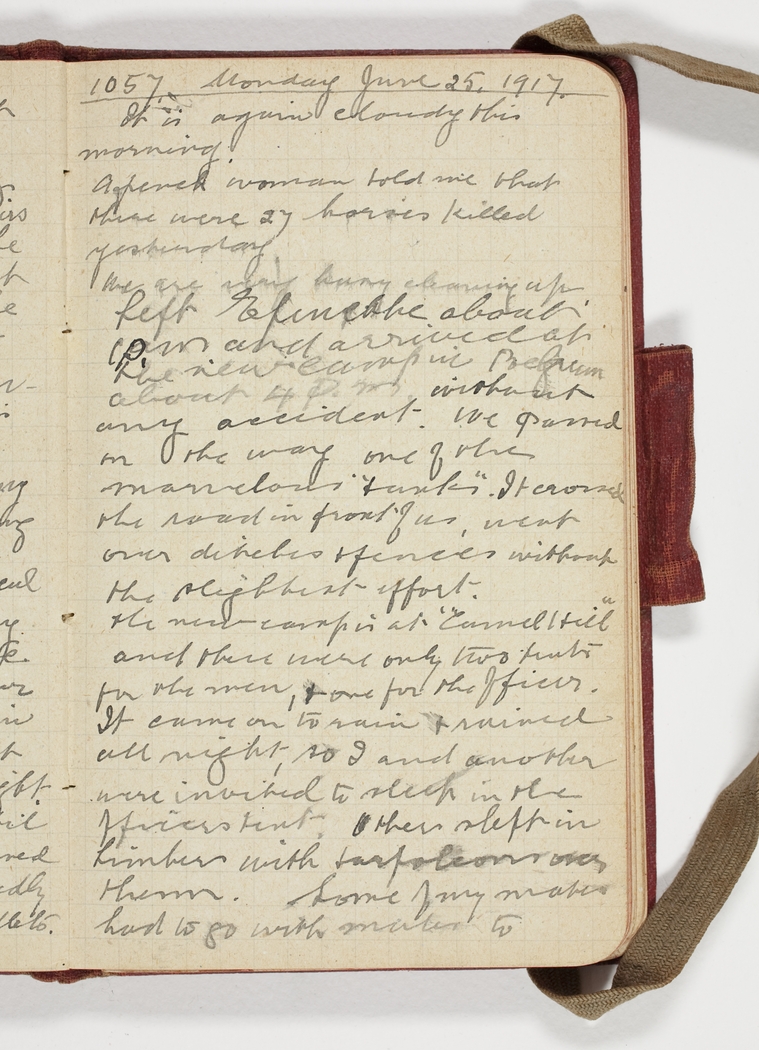 1057. Monday June 25, 1917.
It is again cloudy this
morning.
A french woman told me that
there were 27 horses killed
yesterday
We are very busy cleaning up
Left about
pm and arrived at
the new camp in Belgium
about 4 P.m, without
any accident. We passed
on the way one of the
marvelous "tanks". It crossed
the road in front of us, went
over ditches & fences without
the slightest effort.
The new camp is at "Camel Hill"
and there were only two tents
for the men, & one for the Officer.
It came on to rain & rained
all night, so I and another
were invited to sleep in the
Officers tent. Others slept in
limbers with tarpoleons over
them. Some of my mates
had to go with mules to
ay
ght
red
adly